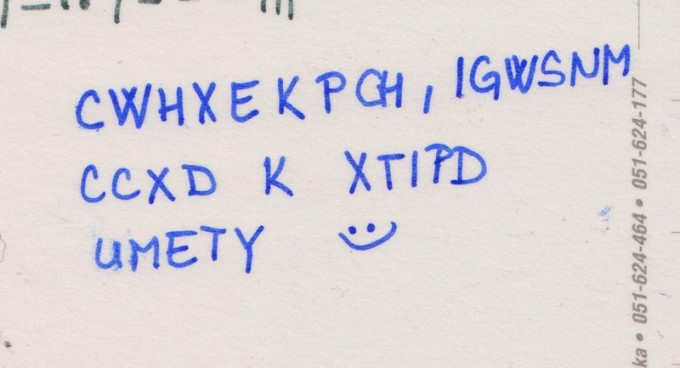 CWHXEKPCH, IGWSNM
CCXD K XTIPD
UMETY
ka • 051-624-464 • 051-624-177